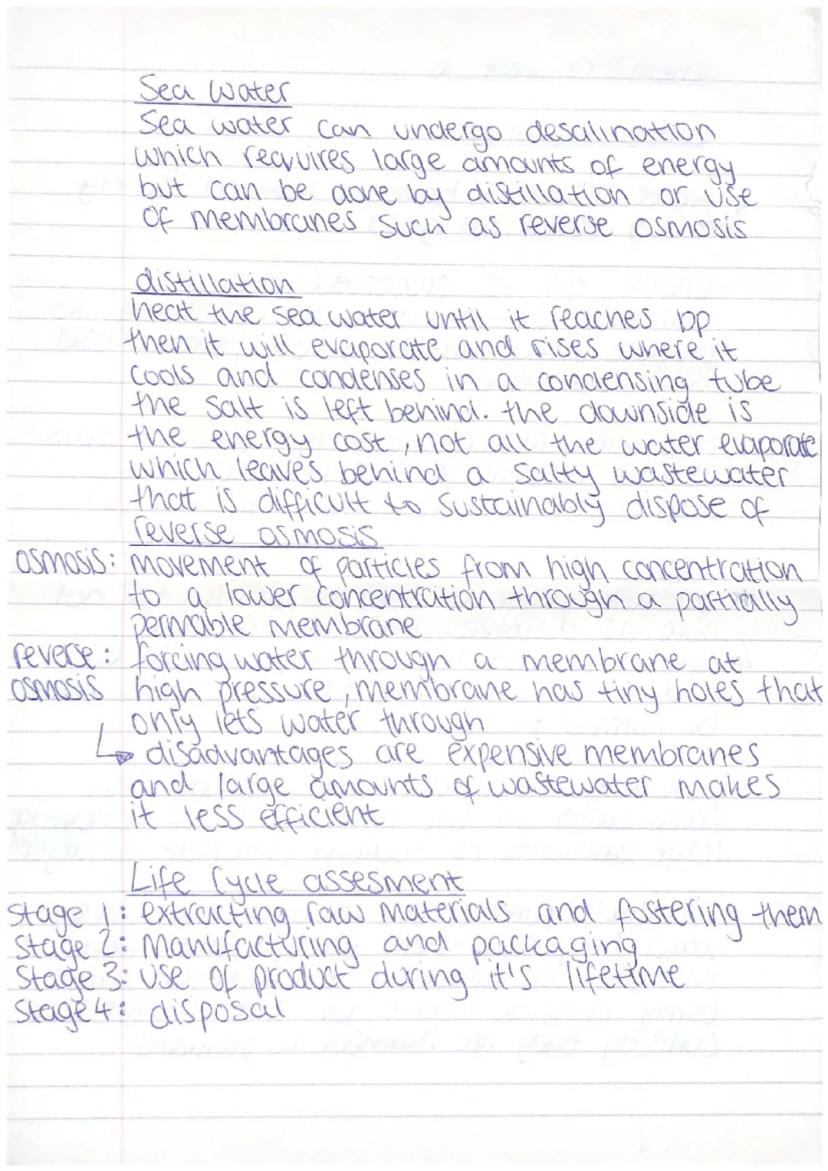 Sea Water
Sea water can undergo desalination
which requires large amounts of energy
but can be done by distillation or use
of membranes such as reverse osmosis
distillation
heat the sea water until it reaches bp
then it will evaporate and rises where it
cools and condenses in a condensing tube
the salt is left behind. the downside is
the energy cost, not all the water evaporate
which leaves behind a salty wastewater
that is difficult to sustainably dispose of
reverse osmosis
osmosis: movement of particles from high concentration
to a lower concentration through a partially
permable membrane
reverse: forcing water through a membrane at
osmosis high pressure, membrane has tiny holes that
only lets water through
↳ disadvantages are expensive membranes
and large amounts of wastewater makes
it less efficient
Life Cycle assesment
stage 1: extracting raw materials and fostering them
stage 2: manufacturing and packaging
stage 3: use of product during it's lifetime
stage 4: disposal